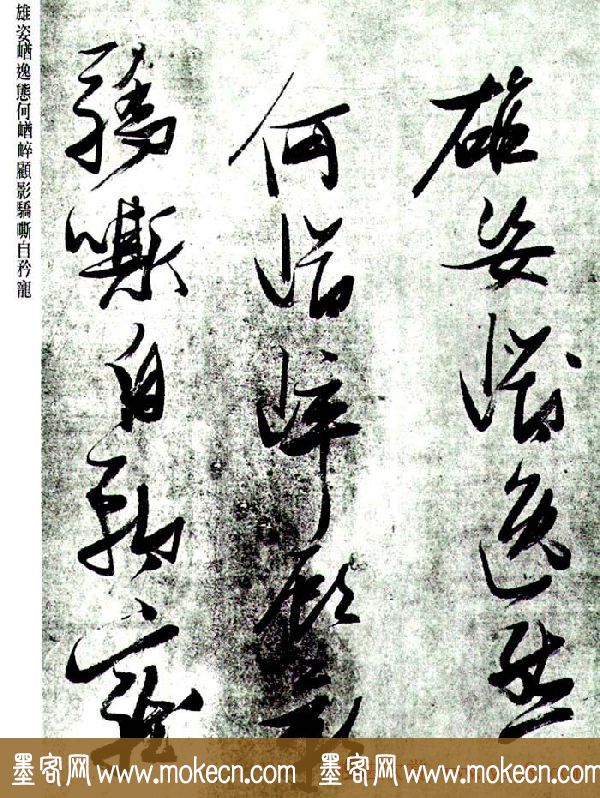 雄姿崷逸態何崷崪顧影驕嘶自矜寵
雄姿崷逸態
何崷崪顧影
驕嘶自矜寵
墨客网 www.mokecn.com 墨客网 www.mokecn.com